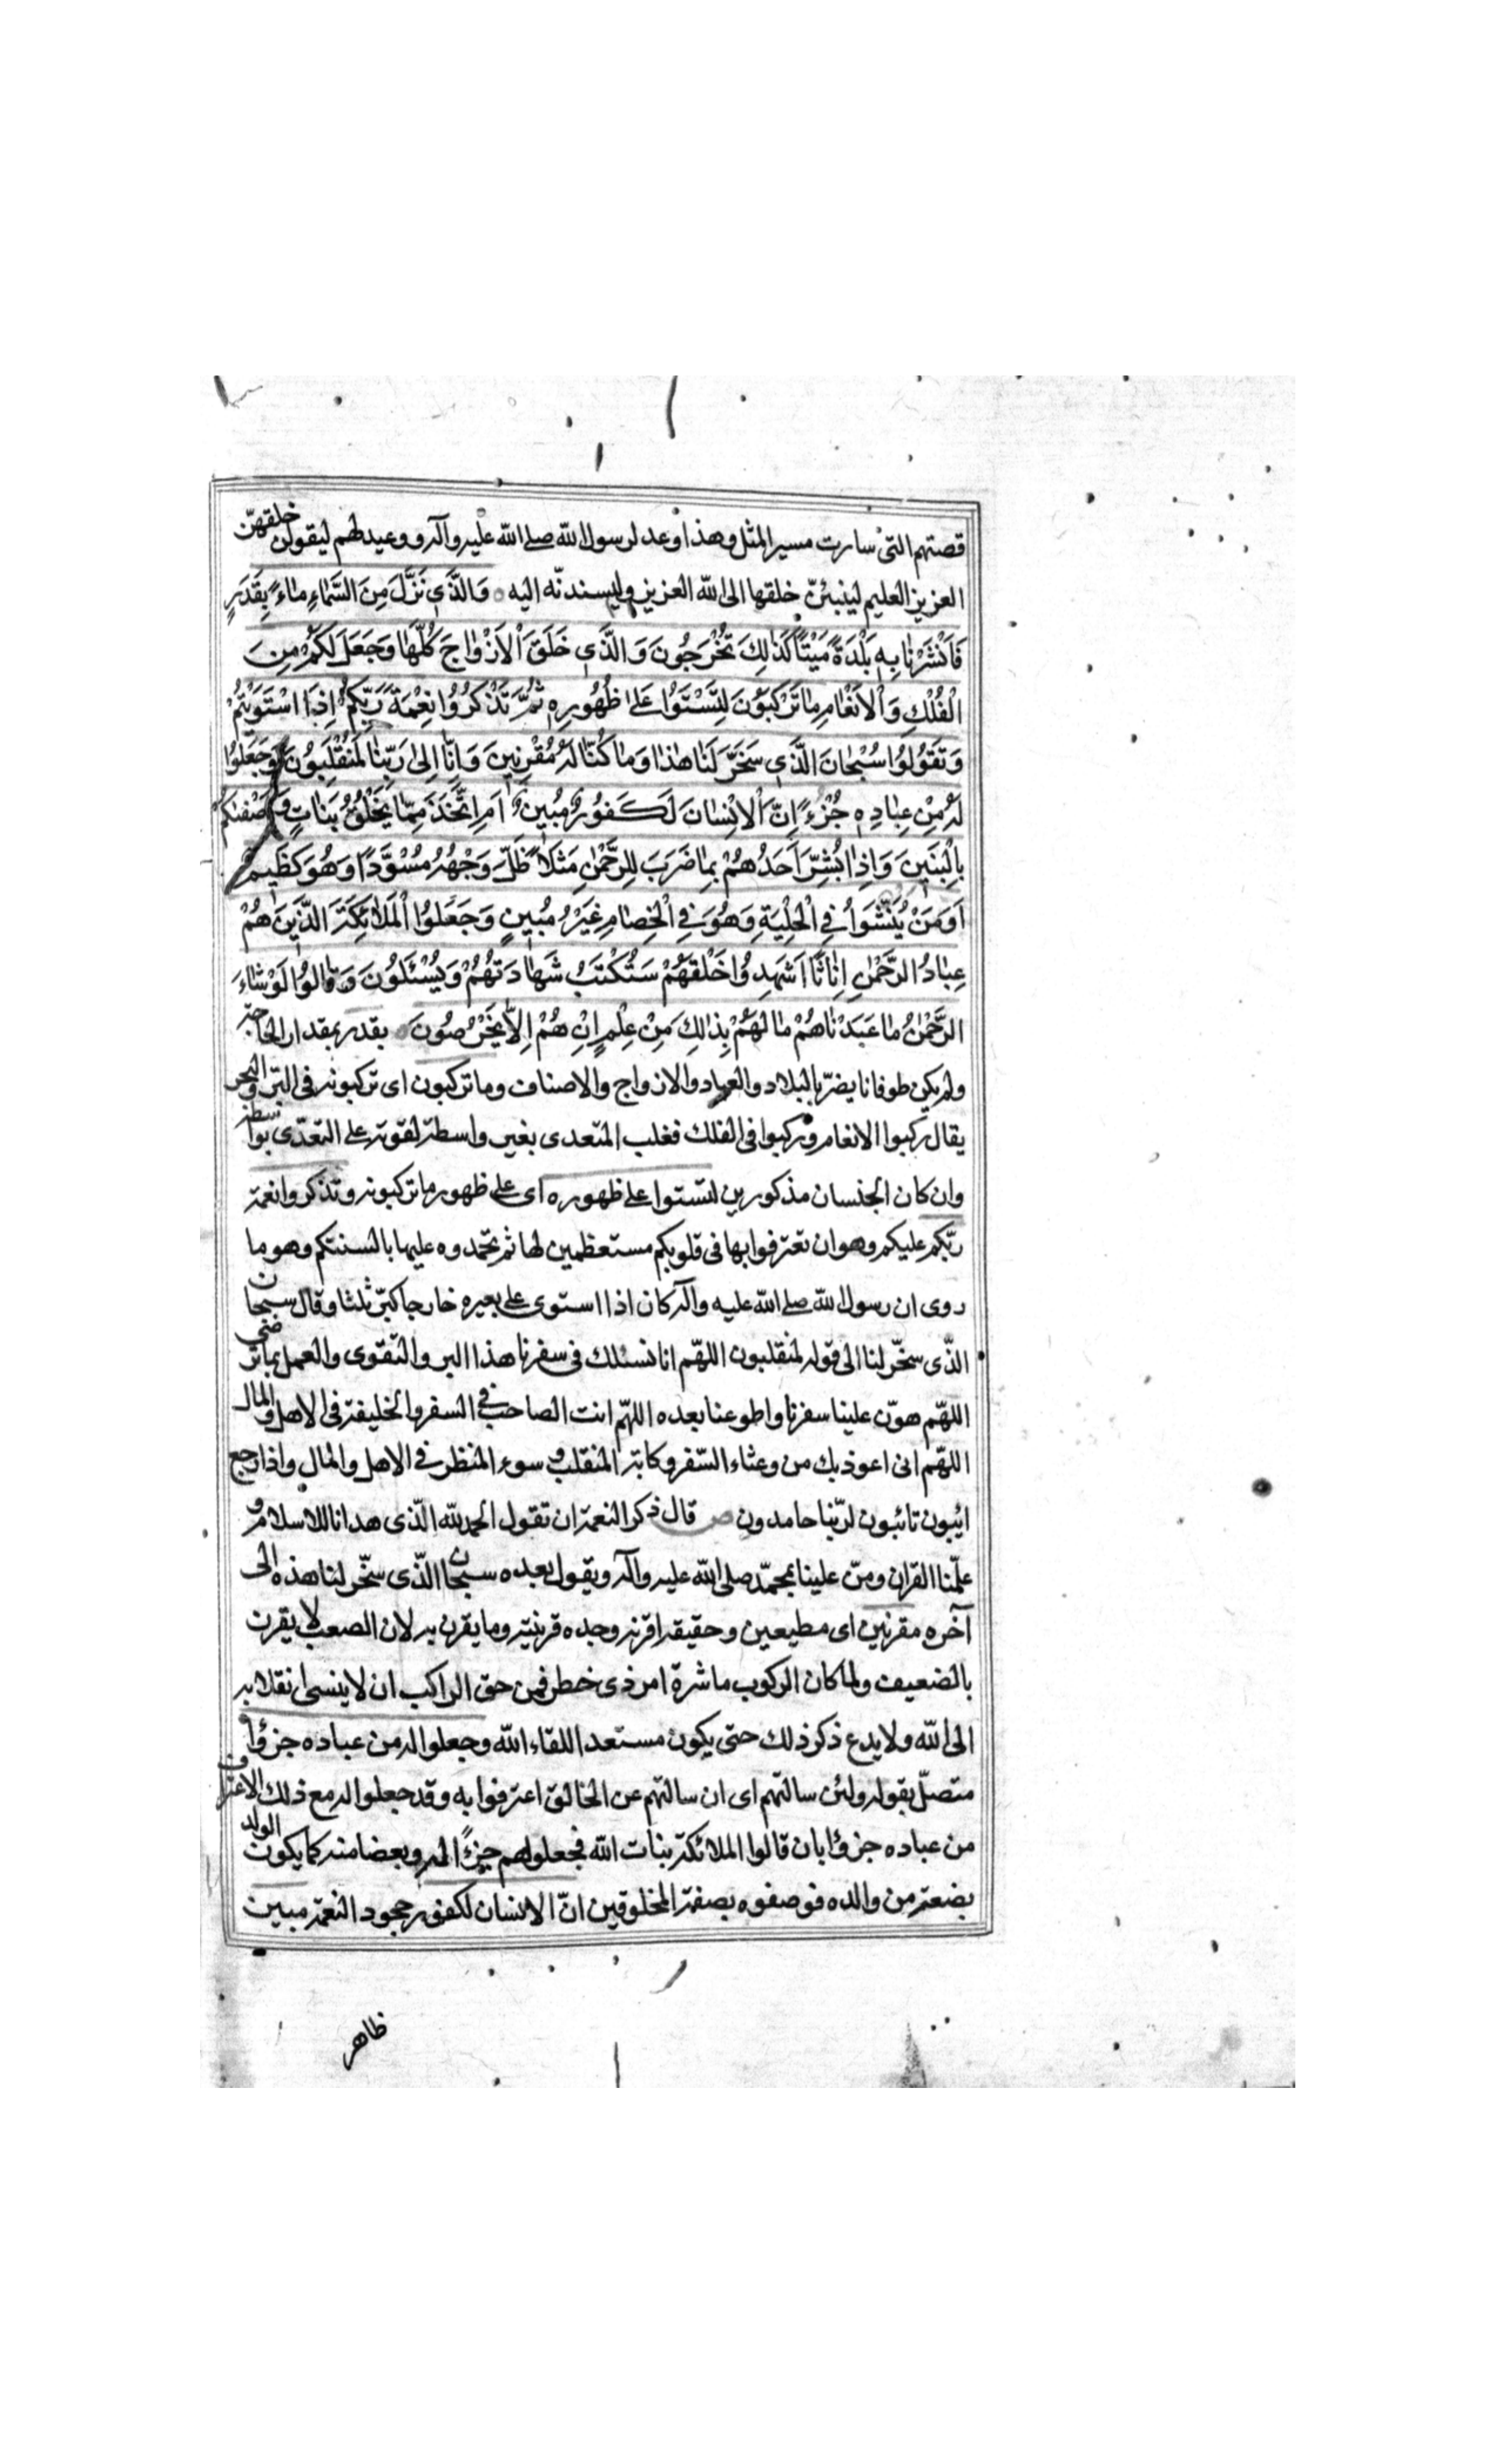 قصتهم التي سارت مسير المثل وهذا وعد لرسول الله صلى الله عليه وآله ووعيد لهم ليقولن خلقهنّ
العزيز العليم لينبئنّ خلقها الى الله العزيز وليسندنّه اليه وَالَّذِي نَزَّلَ مِنَ السَّمَاءِ مَاءً بِقَدَرٍ
فَاَنْشَرْنَا بِهِ بَلْدَةً مَيْتًا كَذٰلِكَ تُخْرَجُونَ وَالَّذِي خَلَقَ الْاَزْوَاجَ كُلَّهَا وَجَعَلَ لَكُمْ مِنَ
الْفُلْكِ وَالْاَنْعَامِ مَا تَرْكَبُونَ لِتَسْتَوُا عَلٰى ظُهُورِهِ ثُمَّ تَذْكُرُوا نِعْمَةَ رَبِّكُمْ اِذَا اسْتَوَيْتُمْ
وَتَقُولُوا سُبْحَانَ الَّذِي سَخَّرَ لَنَا هٰذَا وَمَا كُنَّا لَهُ مُقْرِنِينَ وَاِنَّا اِلٰى رَبِّنَا لَمُنْقَلِبُونَ وَجَعَلُوا
لَهُ مِنْ عِبَادِهِ جُزْءً اِنَّ الْاِنْسَانَ لَكَفُورٌ مُبِينٌ اَمِ اتَّخَذَ مِمَّا يَخْلُقُ بَنَاتٍ وَاَصْفٰىكُمْ
بِالْبَنِينَ وَاِذَا بُشِّرَ اَحَدُهُمْ بِمَا ضَرَبَ لِلرَّحْمٰنِ مَثَلًا ظَلَّ وَجْهُهُ مُسْوَدًّا وَهُوَ كَظِيمٌ
اَوَمَنْ يُنَشَّؤُا فِي الْحِلْيَةِ وَهُوَ فِي الْخِصَامِ غَيْرُ مُبِينٍ وَجَعَلُوا الْمَلَائِكَةَ الَّذِينَ هُمْ
عِبَادُ الرَّحْمٰنِ اِنَاثًا اَشَهِدُوا خَلْقَهُمْ سَتُكْتَبُ شَهَادَتُهُمْ وَيُسْئَلُونَ وَقَالُوا لَوْ شَاءَ
الرَّحْمٰنُ مَا عَبَدْنَاهُمْ مَا لَهُمْ بِذٰلِكَ مِنْ عِلْمٍ اِنْ هُمْ اِلَّا يَخْرُصُونَ بقدر بمقدار الحاجة
ولم يكن طوفانا يضرّ بالبلاد والعباد والازواج والاصناف وما تركبون اى تركبونه فى البرّ والبحر
يقال ركبوا الانعام وركبوا فى الفلك فغلب المتعدى بغير واسطة لقوته على التعدّى بواسطة
وان كان الجنسان مذكورين لتستوا على ظهوره اى على ظهور ما تركبونه وتذكروا نعمة
ربّكم عليكم وهو ان تعترفوا بها فى قلوبكم مستعظمين لها ثم تحمدوه عليها بالسنتكم وهو ما
روى ان رسول الله صلى الله عليه وآله كان اذا استوى على بعيره خارجا كبّر ثلثا وقال سبحان
الذّى سخّر لنا الى قوله لمنقلبون اللهّم انا نسئلك فى سفرنا هذا البر والتقوى والعمل بما ترضى
اللهّم هوّن علينا سفرنا واطو عنا بعده اللهّم انت الصاحب فى السفر والخليفة فى الاهل والمال
اللهّم انى اعوذ بك من وعثاء السّفر وكابة المنقلب وسوء المنظر فى الاهل والمال واذا رجع
ائبون تائبون لربّنا حامدون ص قال ذكر النعمة ان تقول الحمد لله الذّى هدانا للاسلام و
علّمنا القران ومنّ علينا بمحمّد صلى الله عليه وآله ويقول بعده سبحان الذّى سخّر لنا هذه الى
آخره مقرنين اى مطيعين وحقيقة اقرنه وجده قرينته وما يقرن به لان الصعب لا يقرن
بالضعيف ولما كان الركوب مباشرة امر ذى خطر فمن حق الراكب ان لا ينسى انقلابه
الى الله ولا يدع ذكر ذلك حتى يكون مستعدا للقاء الله وجعلوا له من عباده جزؤا
متصلّ بقوله ولئن سالتهم اى ان سالتهم عن الخالق اعترفوا به وقد جعلوا له مع ذلك الاعتراف
من عباده جزؤا بان قالوا الملائكة بنات الله فجعلوهم جزءً له وبعضا منه كما يكون الولد
بضعة من والده فوصفوه بصفة المخلوقين انّ الانسان لكفور جحود النعمة مبين
ظاهر